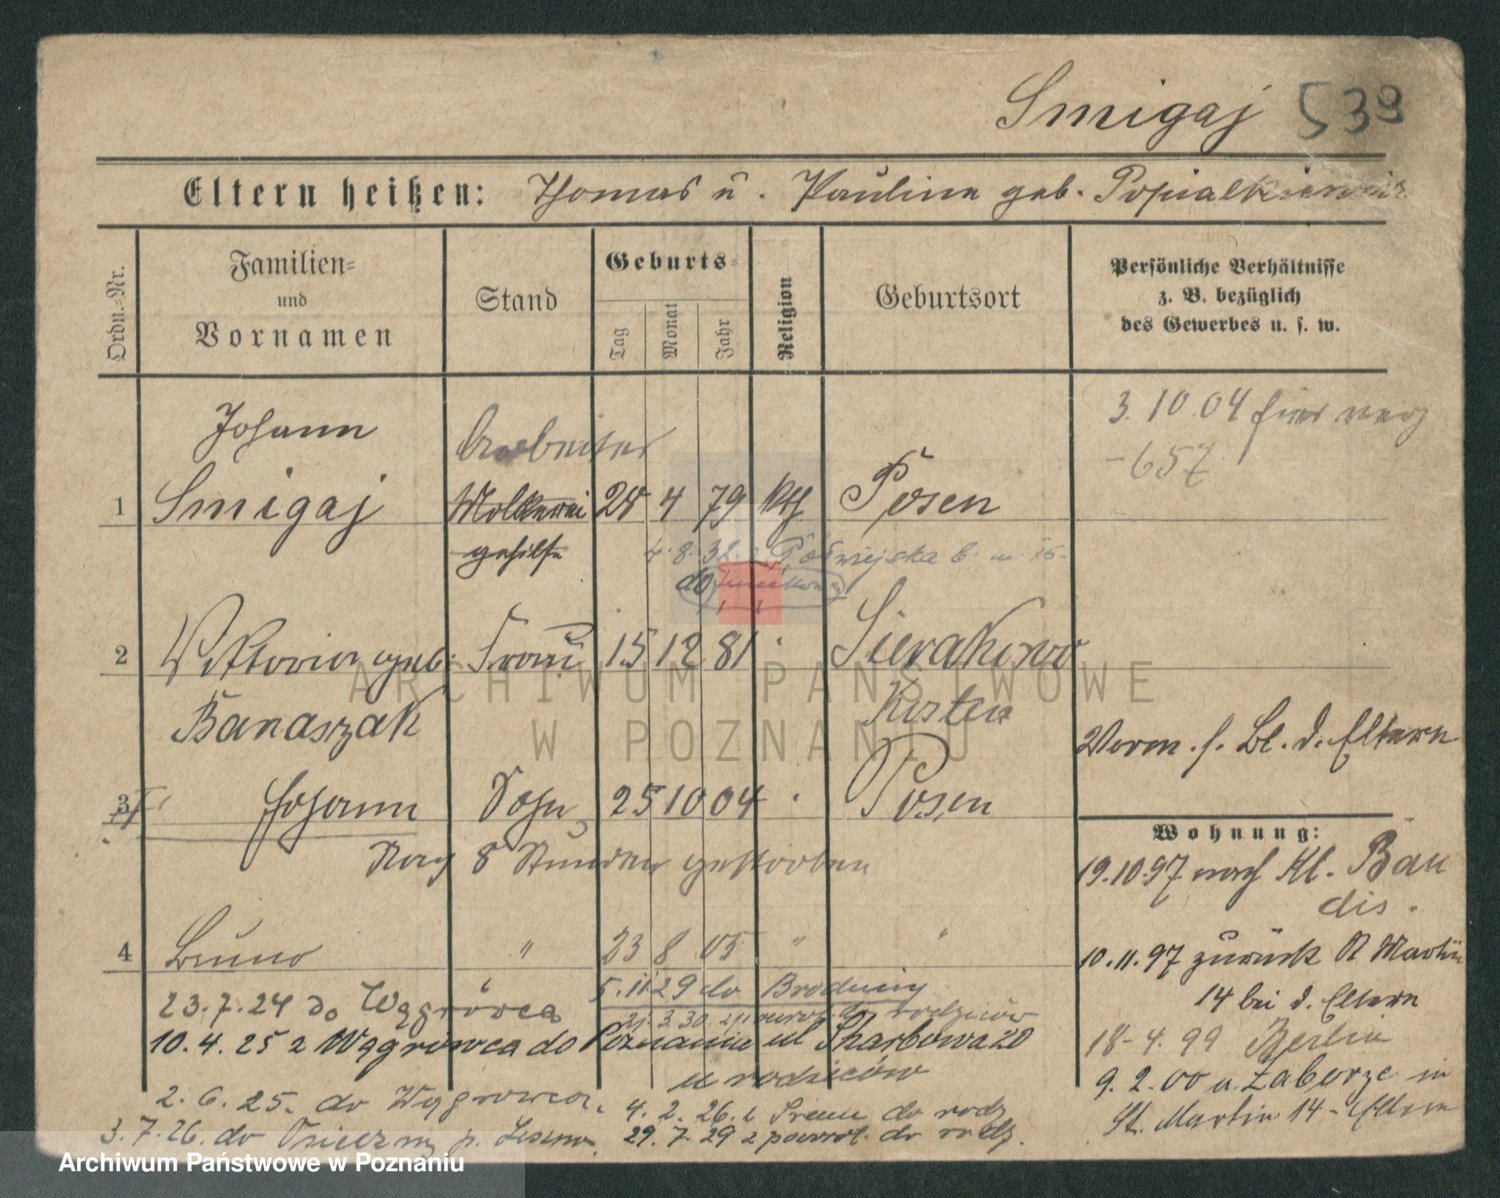 Smigaj 539
Eltern heißen: Thomas u. Pauline geb. Popialkiewicz
Ordn.-Nr.
Familien-
und
Vornamen
Stand
Geburts-
Tag
Monat
Jahr
Religion
Geburtsort
Persönliche Verhältnisse
z. B. bezüglich
des Gewerbes u. s. w.
3.10.04
-657
Johann
Arbeiter
1 Smigaj Molkerei 28 4 79 kth Posen
gehilfe
4.8.32
do
2 Viktoria geb. Frau 15 12 81 Sierakowo
Banaszak Kosten
Verm. s. Bl. d. Eltern
3 Johann Sohn 25 10 04 Posen
Nach 8 Stunden gestorben
Wohnung:
19.10.97 nach Kl. Bau
dis.
4 Bruno " 23 8 05 " "
10.11.97 zurück St Martin
14 bei d. Eltern
23.7.24 do Wągrowca
5.11.29 do Brodnicy
21.3.30 rodziców
10.4.25 z Wągrowca do Poznania ul Skarbowa 20
u rodziców
18-4.99 Berlin
9.2.00 a. Zaborze in
St. Martin 14 - Eltern
2.6.25. do Wągrowca.
4.2.26. z Śremu do rodz
3.7.26. do Osieczny p. Leszno.
29.7.29 z powrot. do rodz.
ARCHIWUM PAŃSTWOWE
W POZNANIU
Archiwum Państwowe w Poznaniu